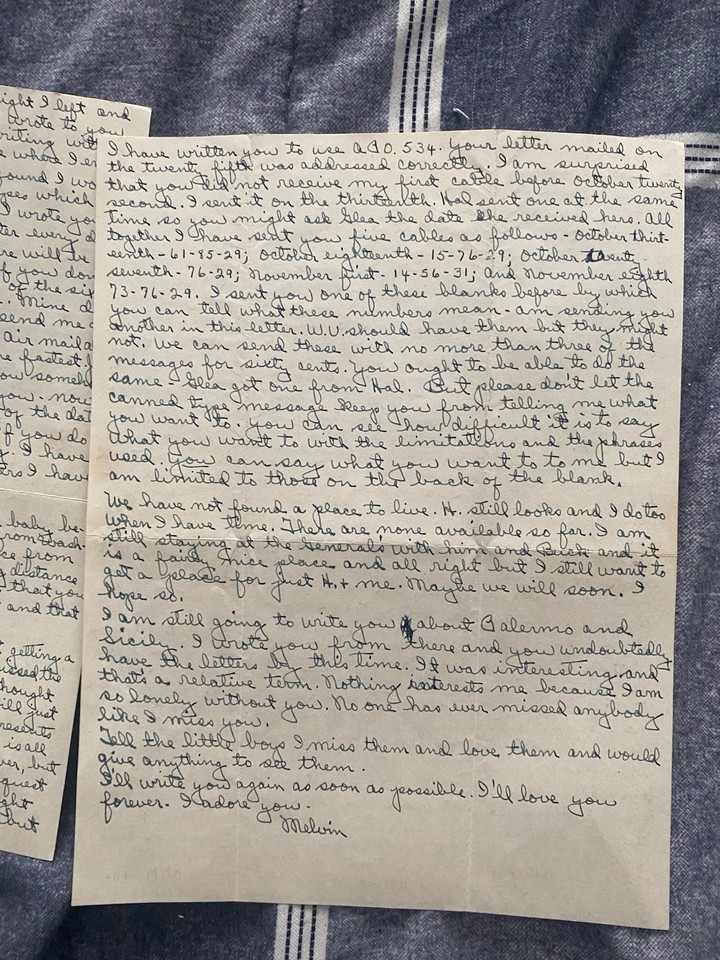 ight I left and
wrote to you
riting with
e where I
ound I wo
yees which
I wrote you
ter every d
re will be
f you don
of the six
. Mine d
send me
air mail
he fastest.
ow someh
you. now
of the dat
f you do
g. I have
ers I have
baby be-
from Wash-
ce from
distance
that you
and that
getting a
issed the
hought
ill just
presents
is all
ver, but
quest
ght
but
I have written you to use A.P.O. 534. Your letter mailed on
the twenty fifth was addressed correctly. I am surprised
that you did not receive my first cable before October twenty
second. I sent it on the thirteenth. Hal sent one at the same
time so you might ask Glea the date she received hers. All
together I have sent you five cables as follows - October thirt-
eenth - 61-85-29; October eighteenth - 15-76-29; October twenty
seventh - 76-29; November first - 14-56-31; and November eighth
73-76-29. I sent you one of these blanks before by which
you can tell what these numbers mean - am sending you
another in this letter. W.U. should have them but they might
not. We can send these with no more than three of the
messages for sixty cents. You ought to be able to do the
same - Glea got one from Hal. But please don't let the
canned type message keep you from telling me what
you want to. You can see how difficult it is to say
what you want to with the limitations and the phrases
used. You can say what you want to to me but I
am limited to those on the back of the blank.
We have not found a place to live. H. still looks and I do too
when I have time. There are none available so far. I am
still staying at the Generals with him and Buck and it
is a fairly nice place and all right but I still want to
get a place for just H. + me. Maybe we will soon. I
hope so.
I am still going to write you about Palermo and
Sicily. I wrote you from there and you undoubtedly
have the letters by this time. It was interesting and
that's a relative term. Nothing interests me because I am
so lonely without you. No one has ever missed anybody
like I miss you.
Tell the little boys I miss them and love them and would
give anything to see them.
I'll write you again as soon as possible. I'll love you
forever. I adore you.
Melvin